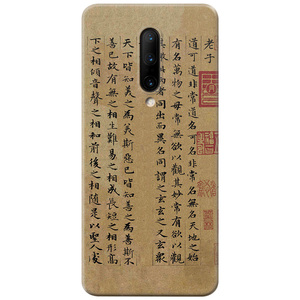 老子
道可道非常道名可名非常名無名天地之始
有名萬物之母常無欲以觀其妙常有欲以觀
同出而異名同謂之玄玄之又玄眾
天下皆知美之為美斯惡已皆知善之為善斯不
善已故有無之相生難易之相成長短之相形高
下之相傾音聲之相和前後之相隨是以聖人處